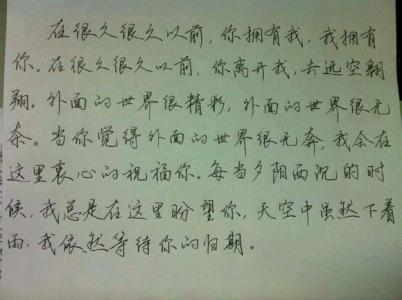 在很久很久以前，你拥有我，我拥有
你。在很久很久以前，你离开我，去远空翱
翔。外面的世界很精彩，外面的世界很无
奈。当你觉得外面的世界很无奈，我会在
这里衷心的祝福你。每当夕阳西沉的时
候，我总是在这里盼望你，天空中虽然下着
雨，我依然等待你的归期。